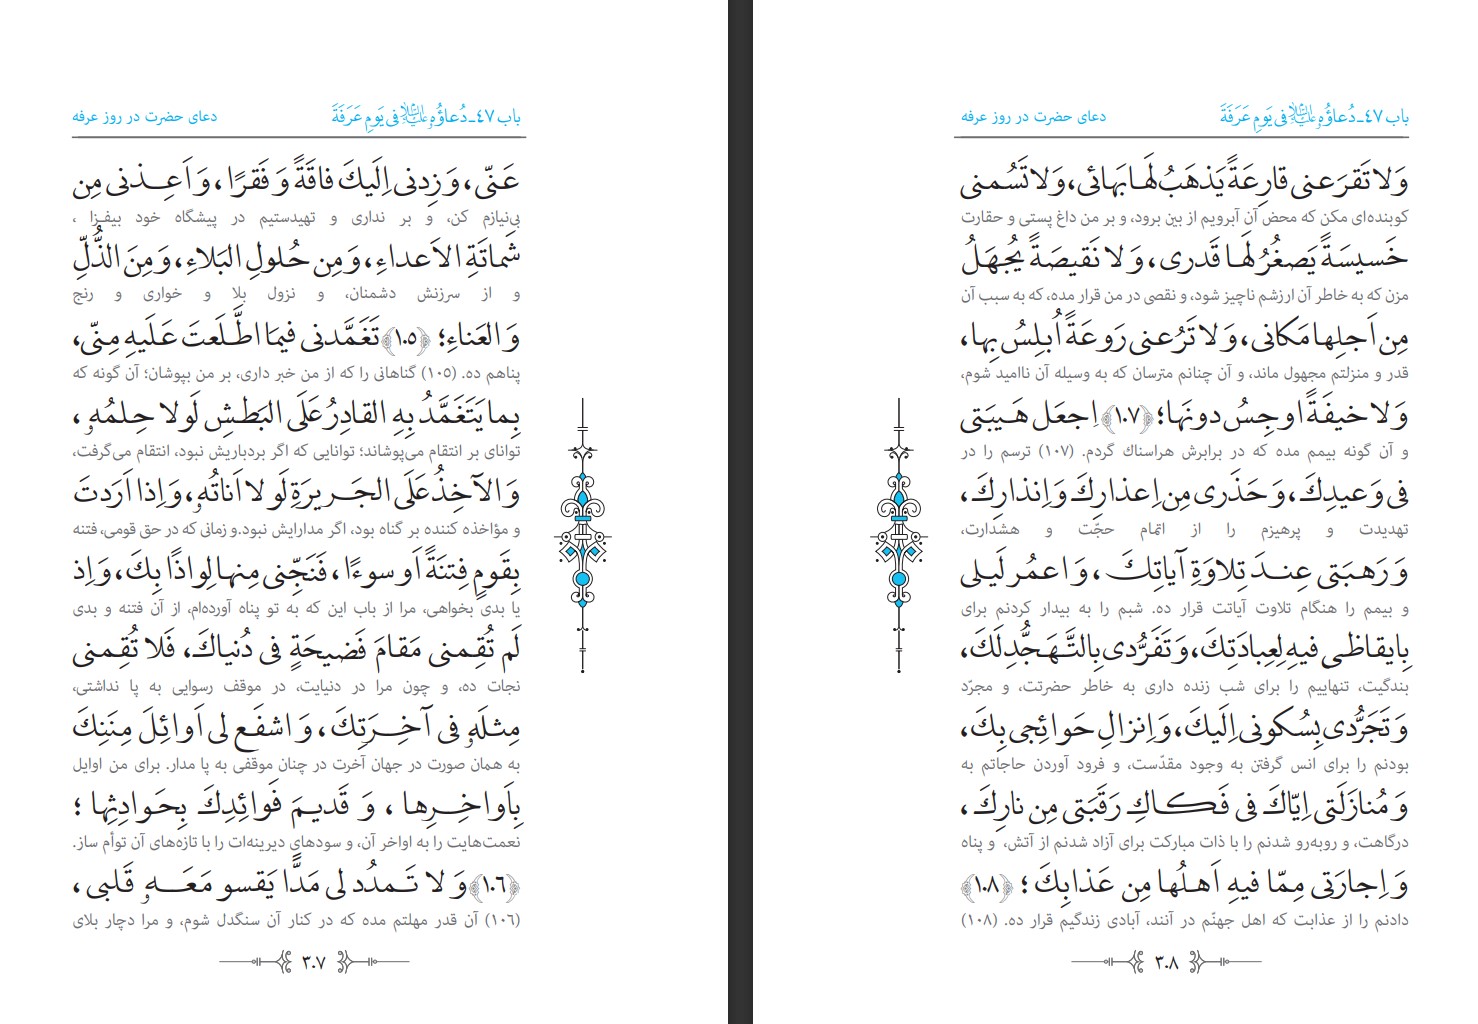 باب ٤٧ـ دُعاؤُهُ علیه‌السلام فی یَومِ عَرَفَةَ
دعای حضرت در روز عرفه
عَنّی، وَ زِدنی اِلَیكَ فاقَةً وَ فَقرًا، وَ اَعِـذنی مِن
بی‌نیازم کن، و بر نداری و تهیدستیم در پیشگاه خود بیفـزا ،
شَماتَةِ الاَعداءِ، وَ مِن حُلولِ البَلاءِ، وَ مِنَ الذُّلِّ
و از سرزنش دشمنان، و نزول بلا و خواری و رنج
وَ العَناءِ؛ ﴿١٠٥﴾ تَغَمَّدنی فیمَا اطَّـلَعتَ عَـلَیهِ مِنّی،
پناهم ده. (١٠٥) گناهانی را که از من خبر داری، بر من بپوشان؛ آن گونه که
بِما یَتَغَمَّدُ بِهِ القادِرُ عَلَی البَطشِ لَولا حِـلمُهُ،
توانای بر انتقام می‌پوشاند؛ توانایی که اگر بردباریش نبود، انتقام می‌گرفت،
وَ الآخِذُ عَلَی الجَـریرَةِ لَولا اَناتُهُ، وَ اِذا اَرَدتَ
و مؤاخذه کننده بر گناه بود، اگر مدارایش نبود.و زمانی که در حق قومی، فتنه
بِقَومٍ فِتنَةً اَو سوءًا، فَنَجِّنی مِنها لِواذًا بِكَ، وَ اِذ
یا بدی بخواهی، مرا از باب این که به تو پناه آورده‌ام، از آن فتنه و بدی
لَم تُقِمنی مَقامَ فَضیحَةٍ فی دُنیاكَ، فَلا تُقِمنی
نجات ده، و چون مرا در دنیایت، در موقف رسوایی به پا نداشتی،
مِثلَهُ فی آخِـرَتِكَ، وَ اشفَع لی اَوائِلَ مِنَنِكَ
به همان صورت در جهان آخرت در چنان موقفی به پا مدار. برای من اوایل
بِاَواخِـرِها ، وَ قَدیمَ فَوائِدِكَ بِحَوادِثِها ؛
نعمت‌هایت را به اواخر آن، و سودهای دیرینه‌ات را با تازه‌های آن توأم ساز.
﴿١٠٦﴾ وَ لا تَـمدُد لی مَدًّا یَقسو مَعَـهُ قَلبی ،
(١٠٦) آن قدر مهلتم مده که در کنار آن سنگدل شوم، و مرا دچار بلای
٣٠٧
باب ٤٧ـ دُعاؤُهُ علیه‌السلام فی یَومِ عَرَفَةَ
دعای حضرت در روز عرفه
وَ لا تَقرَعنی قارِعَةً یَذهَبُ لَهـا بَهائی، وَ لا تَسُمنی
کوبنده‌ای مکن که محض آن آبرویم از بین برود، و بر من داغ پستی و حقارت
خَسیسَةً یَصغُرُ لَهـا قَدری، وَ لا نَقیصَةً یُجهَلُ
مزن که به خاطر آن ارزشم ناچیز شود، و نقصی در من قرار مده، که به سبب آن
مِن اَجلِها مَکانی، وَ لا تَرُعنی رَوعَةً اُبلِسُ بِها،
قدر و منزلتم مجهول ماند، و آن چنانم مترسان که به وسیله آن ناامید شوم،
وَ لا خیفَةً اوجِسُ دونَها؛ ﴿١٠٧﴾ اِجعَل هَـیبَتی
و آن گونه بیمم مده که در برابرش هراسناك گردم. (١٠٧) ترسم را در
فی وَعیدِكَ، وَ حَذَری مِن اِعذارِكَ وَ اِنذارِكَ،
تهدیدت و پرهیزم را از اتمام حجّت و هشدارت،
وَ رَهبَتی عِنـدَ تِلاوَةِ آیاتِكَ، وَ اعمُر لَیـلی
و بیمم را هنگام تلاوت آیاتت قرار ده. شبم را به بیدار کردنم برای
بِایقاظـی فیهِ لِعِبادَتِكَ، وَ تَفَرُّدی بِالتَّـهَجُّدِ لَكَ،
بندگیت، تنهاییم را برای شب زنده داری به خاطر حضرتت، و مجرّد
وَ تَجَرُّدی بِسُکونی اِلَیكَ، وَ اِنزالِ حَوائِجی بِكَ،
بودنم را برای انس گرفتن به وجود مقدّست، و فرود آوردن حاجاتم به
وَ مُنازَلَتی اِیّاكَ فی فَـكـاكِ رَقَبَتی مِن نارِكَ ،
درگاهت، و روبه‌رو شدنم را با ذات مبارکت برای آزاد شدنم از آتش، و پناه
وَ اِجارَتی مِمّا فیهِ اَهـلُها مِن عَذابِكَ ؛ ﴿١٠٨﴾
دادنم را از عذابت که اهل جهنّم در آنند، آبادی زندگیم قرار ده. (١٠٨)
٣٠٨